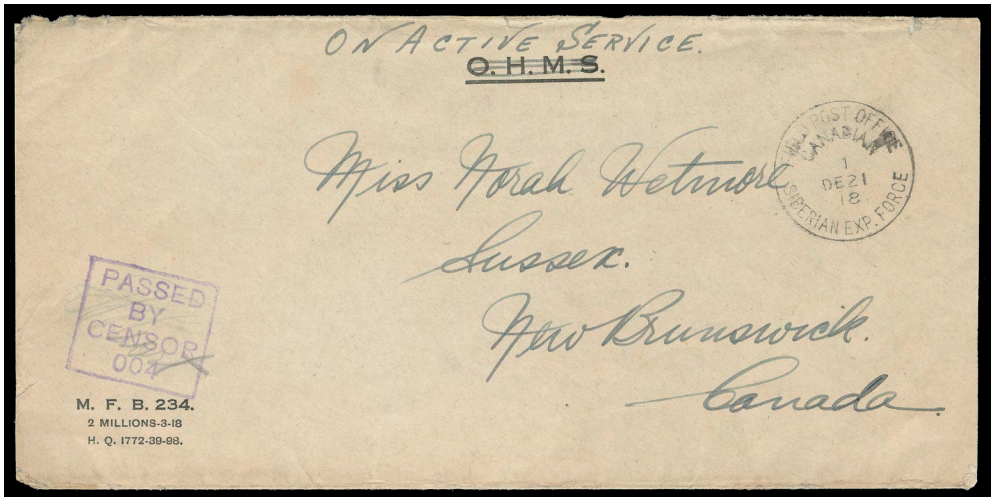 ON ACTIVE SERVICE.
O. H. M. S.
POST OFFICE
CANADIAN
1
DE 21
18
SIBERIAN EXP. FORCE
Miss Norah Wetmore
Sussex.
New Brunswick.
Canada.
PASSED
BY
CENSOR
004
M. F. B. 234.
2 MILLIONS-3-18
H. Q. 1772-39-98.